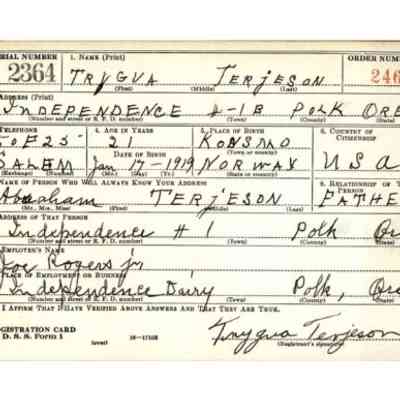 ERIAL NUMBER 1. NAME (Print) ORDER NUMBER
2364 TRYGVA TERJESON 246
(First) (Middle) (Last)
ADDRESS (Print)
INDEPENDENCE #-1B POLK ORE
(Number and street or R. F. D. number) (Town) (County)
TELEPHONE 4. AGE IN YEARS 5. PLACE OF BIRTH 6. COUNTRY OF CITIZENSHIP
50F25 21 KONSMO
SALEM DATE OF BIRTH Jan 17-1919 NORWAY USA
(Exchange) (Number) (Mo.) (Day) (Yr.) (State or country)
NAME OF PERSON WHO WILL ALWAYS KNOW YOUR ADDRESS 8. RELATIONSHIP OF T
Abraham TERJESON FATHE
(Mr., Mrs., Miss) (First) (Middle) (Last)
ADDRESS OF THAT PERSON
Independence #1 Polk Or
(Number and street or R. F. D. number) (Town) (County)
EMPLOYER'S NAME
Joe Rogers jr
PLACE OF EMPLOYMENT OR BUSINESS
Independence Dairy Polk, Ore
(Number and street or R. F. D. number) (Town) (County)
I AFFIRM THAT I HAVE VERIFIED ABOVE ANSWERS AND THAT THEY ARE TRUE.
REGISTRATION CARD
D. S. S. Form 1 (over) 16-17105 Trygva Terjeson
(Registrant's signature)